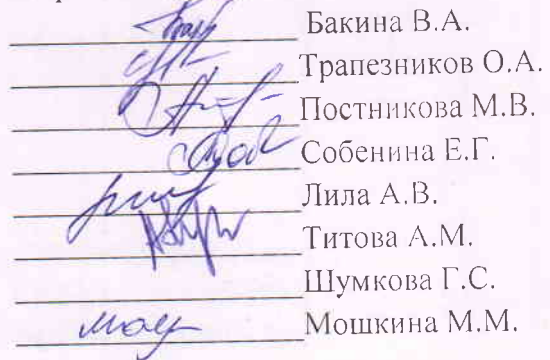 Бакина В.А.
Трапезников О.А.
Постникова М.В.
Собенина Е.Г.
Лила А.В.
Титова А.М.
Шумкова Г.С.
Мошкина М.М.